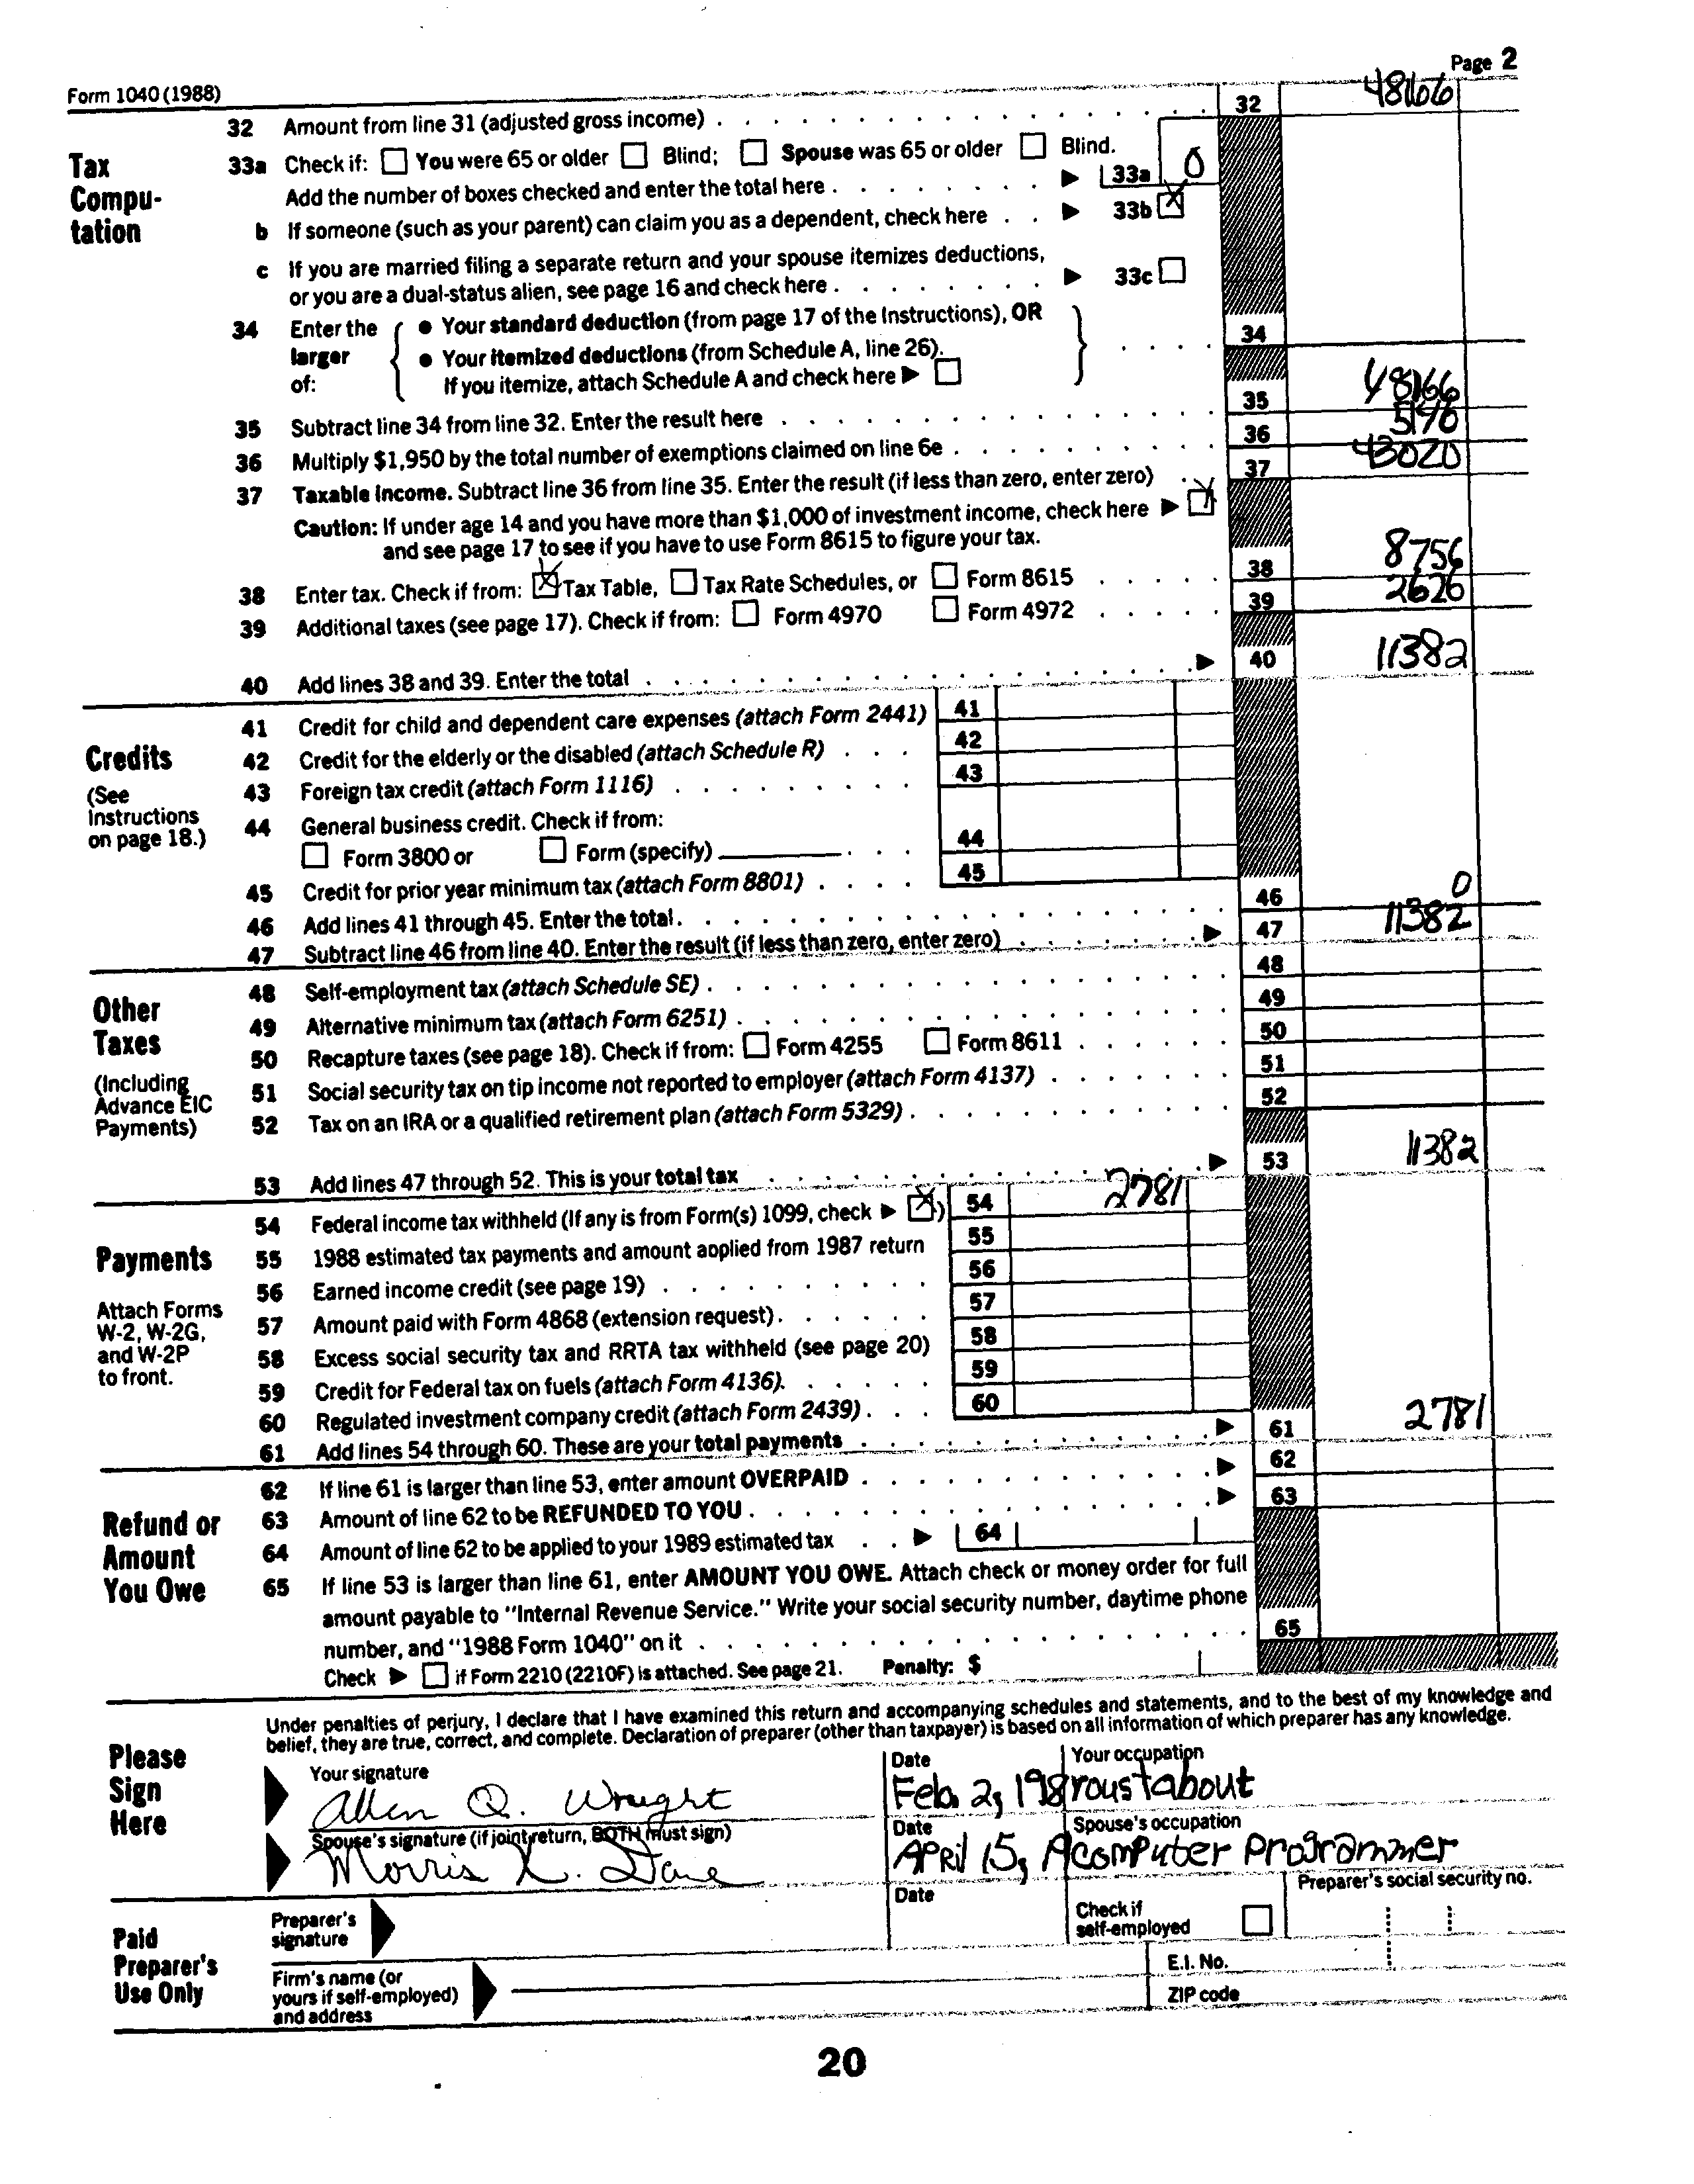 Form 1040 (1988)
Page 2
32 Amount from line 31 (adjusted gross income) 32 48166
Tax Compu-tation
33a Check if: You were 65 or older Blind; Spouse was 65 or older Blind.
Add the number of boxes checked and enter the total here 33a 0
b If someone (such as your parent) can claim you as a dependent, check here 33b X
c If you are married filing a separate return and your spouse itemizes deductions,
or you are a dual-status alien, see page 16 and check here 33c
34 Enter the larger of:
• Your standard deduction (from page 17 of the Instructions), OR
• Your itemized deductions (from Schedule A, line 26).
If you itemize, attach Schedule A and check here
34
35 Subtract line 34 from line 32. Enter the result here 35 48166
36 Multiply $1,950 by the total number of exemptions claimed on line 6e 36
37 Taxable income. Subtract line 36 from line 35. Enter the result (if less than zero, enter zero) 37 43020
Caution: If under age 14 and you have more than $1,000 of investment income, check here X
and see page 17 to see if you have to use Form 8615 to figure your tax.
38 Enter tax. Check if from: X Tax Table, Tax Rate Schedules, or Form 8615 38 8756
39 Additional taxes (see page 17). Check if from: Form 4970 Form 4972 39 2626
40 Add lines 38 and 39. Enter the total 40 11382
Credits
(See Instructions on page 18.)
41 Credit for child and dependent care expenses (attach Form 2441) 41
42 Credit for the elderly or the disabled (attach Schedule R) 42
43 Foreign tax credit (attach Form 1116) 43
44 General business credit. Check if from:
Form 3800 or Form (specify) 44
45 Credit for prior year minimum tax (attach Form 8801) 45
46 Add lines 41 through 45. Enter the total. 46 0
47 Subtract line 46 from line 40. Enter the result (if less than zero, enter zero) 47 11382
Other Taxes
(Including Advance EIC Payments)
48 Self-employment tax (attach Schedule SE) 48
49 Alternative minimum tax (attach Form 6251) 49
50 Recapture taxes (see page 18). Check if from: Form 4255 Form 8611 50
51 Social security tax on tip income not reported to employer (attach Form 4137) 51
52 Tax on an IRA or a qualified retirement plan (attach Form 5329) 52
53 Add lines 47 through 52. This is your total tax 53 11382
Payments
Attach Forms W-2, W-2G, and W-2P to front.
54 Federal income tax withheld (If any is from Form(s) 1099, check X) 54 2781
55 1988 estimated tax payments and amount applied from 1987 return 55
56 Earned income credit (see page 19) 56
57 Amount paid with Form 4868 (extension request) 57
58 Excess social security tax and RRTA tax withheld (see page 20) 58
59 Credit for Federal tax on fuels (attach Form 4136). 59
60 Regulated investment company credit (attach Form 2439) 60
61 Add lines 54 through 60. These are your total payments 61 2781
Refund or Amount You Owe
62 If line 61 is larger than line 53, enter amount OVERPAID 62
63 Amount of line 62 to be REFUNDED TO YOU 63
64 Amount of line 62 to be applied to your 1989 estimated tax 64
65 If line 53 is larger than line 61, enter AMOUNT YOU OWE. Attach check or money order for full
amount payable to "Internal Revenue Service." Write your social security number, daytime phone
number, and "1988 Form 1040" on it 65
Check if Form 2210 (2210F) is attached. See page 21. Penalty: $
Please Sign Here
Under penalties of perjury, I declare that I have examined this return and accompanying schedules and statements, and to the best of my knowledge and
belief, they are true, correct, and complete. Declaration of preparer (other than taxpayer) is based on all information of which preparer has any knowledge.
Your signature Date Your occupation
Allen Q. Wright Feb. 2, 198 roustabout
Spouse's signature (if joint return, BOTH must sign) Date Spouse's occupation
Morris X. Dane APRil 15, A computer Programmer
Paid Preparer's Use Only
Preparer's signature Date Check if self-employed Preparer's social security no.
Firm's name (or yours if self-employed) and address
E.I. No.
ZIP code
20